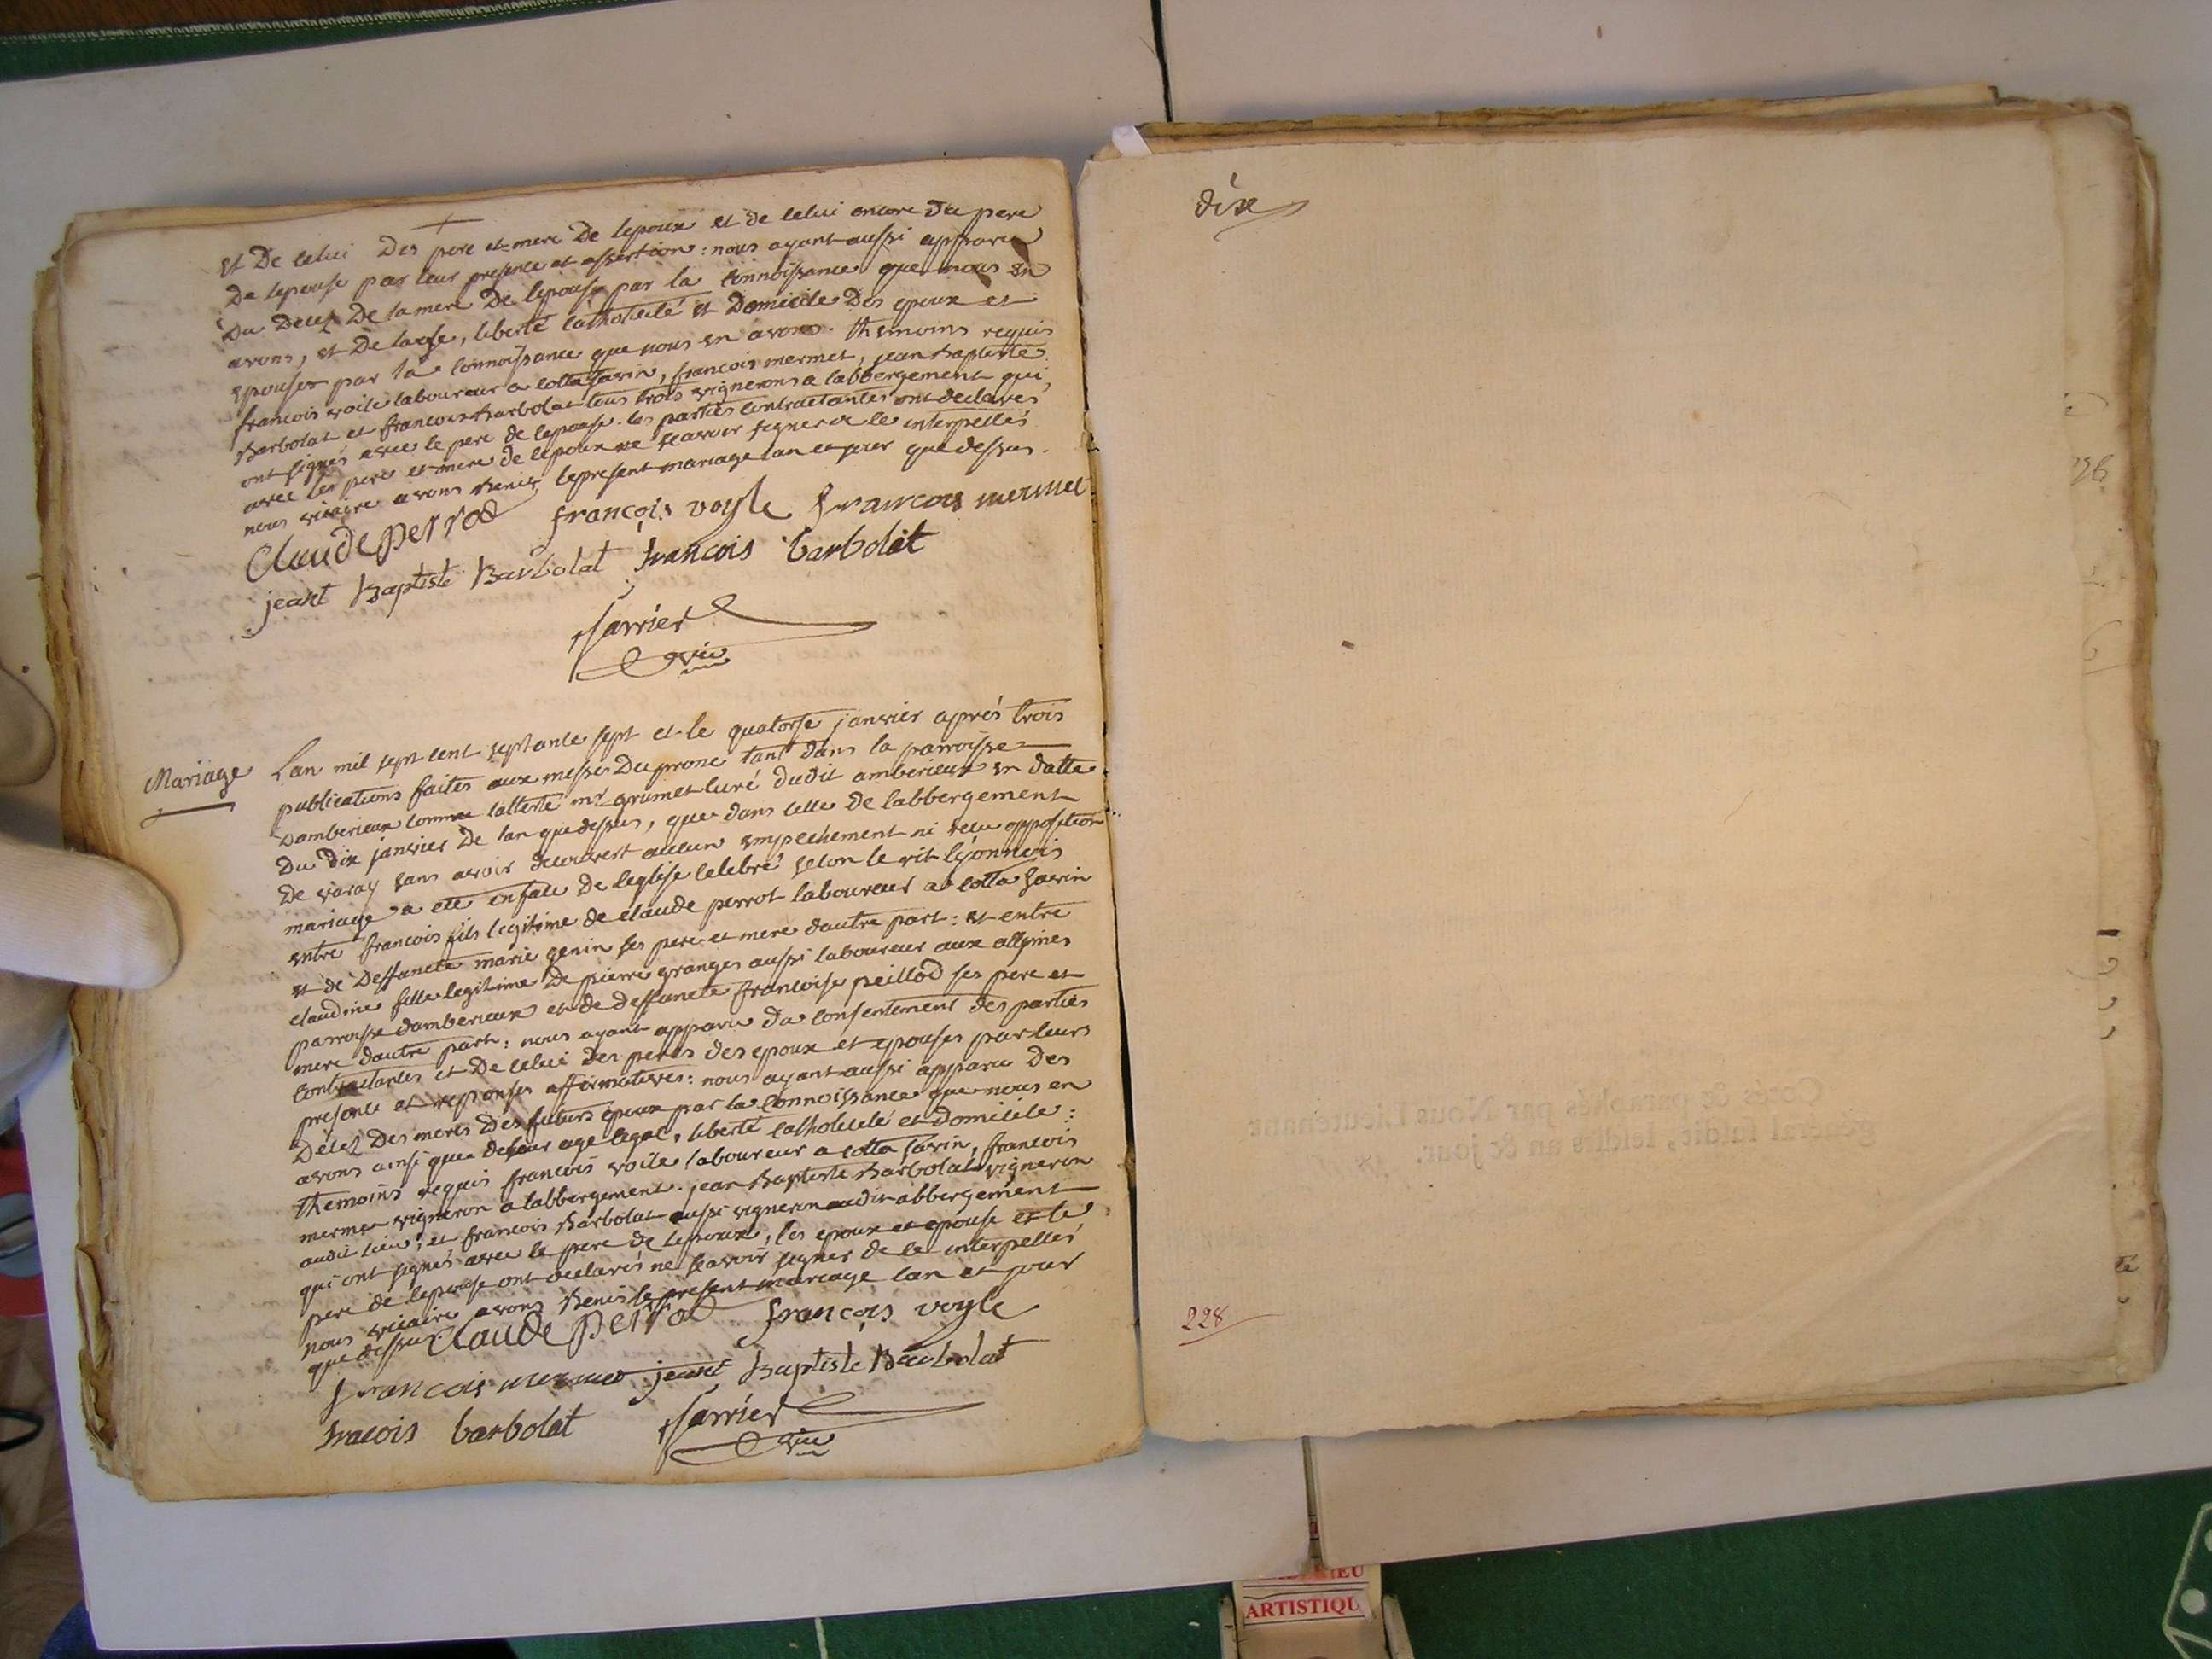 et De celui Des pere et mere De lepoux et de celui encore Du pere
De lepouse par leur presence et assertion : nous ayant aussi apparu
Du Decez De la mere De lepouse par la connoissance que nous en
avons, et De lage, liberté catholicité et Domicile Des epoux et
epouses par la connoissance que nous en avons. themoins requis
francois voile laboureur a cotta savin, francois mermet, jean baptiste
Barbolat et francois Barbolat tous trois vignerons a labbergement qui
ont signés avec le pere de lepouse. les parties contractantes ont declarés
avec les pere et mere de lepoux ne scavoir signer de ce interpellés
nous vicaire avons benis le present mariage lan et jour que dessus.
Claude perrod françois voyle francois mermet
jeant Baptiste Barbolat francois barbolat
sarrier
vic
Mariage
Lan mil sept cent septante sept et le quatorse janvier aprés trois
publications faites aux messes Du prone tant dans la parroisse
Damberieux comme latteste mr grumet curé dudit amberieux en datte
Du dix janvier De lan que dessus, que dans celle de labbergement
De varay sans avoir decouvert aucun empechement ni recu opposition
mariage a ete en face De leglise celebré selon le rit lyonnois
entre francois fils legitime de claude perrot laboureur a cotta savin
et de Deffuncte marie genin ses pere et mere dautre part : et entre
claudine fille legitime De pierre granges aussi laboureur aux allymes
parroisse damberieux et de deffuncte francoise peillod ses pere et
mere dautre part : nous ayant apparu Du consentement des parties
contractantes et De celui des peres des epoux et epouses par leurs
presence et reponses affirmatives : nous ayant aussi apparu Des
Decez Des meres Des futurs epoux par la connoissance que nous en
avons ainsi que de leur age legal, liberté catholicité et domicile :
themoins requis francois voile laboureur a cotta savin, francois
mermet vigneron a labbergement. jean Baptiste Barbolat vigneron
audit lieu, et francois Barbolat aussi vigneron audit abbergement
qui ont signés avec le pere de lepoux, les epoux et epouse et le
pere de lepouse ont declarés ne scavoir signer de ce interpellés
nous vicaire avons benis le present mariage lan et jour
que dessus. Claude perrod françois voyle
francois mermet jeant Baptiste Barbolat
fracois barbolat sarrier
vic
dix
Cotés & paraphés par Nous Lieutenant
général susdit, lesdits an & jour.
228
ARTISTIQU